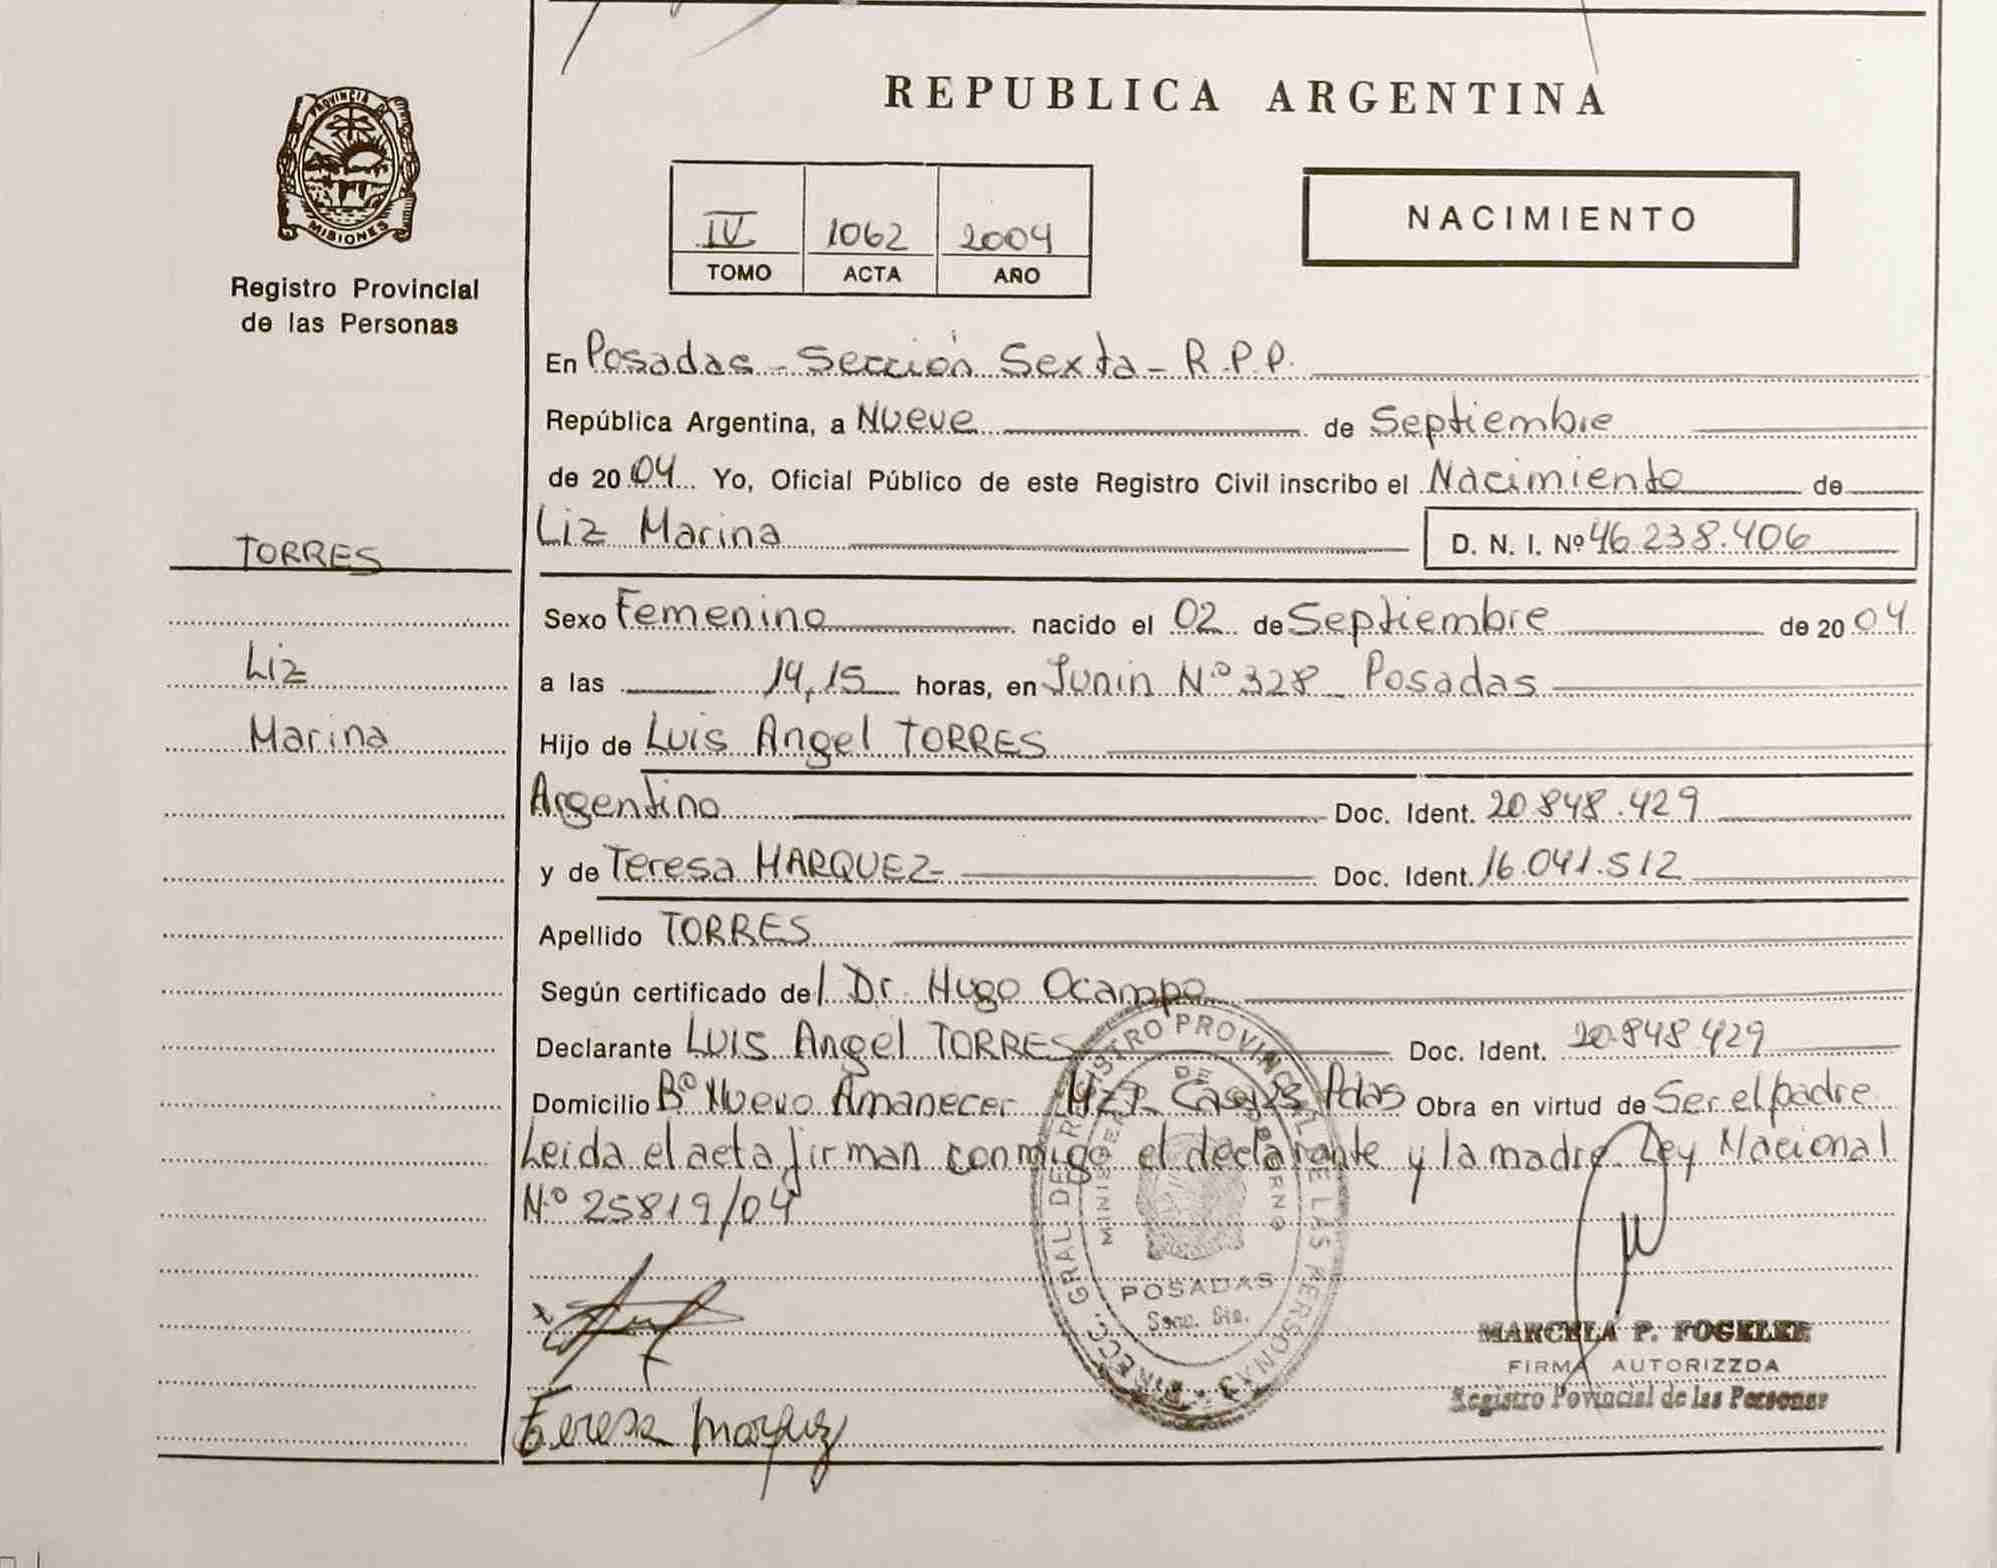 REPUBLICA ARGENTINA
PROVINCIA DE
MISIONES
Registro Provincial
de las Personas
IV 1062 2004
TOMO ACTA AÑO
NACIMIENTO
En Posadas - Sección Sexta - R.P.P.
República Argentina, a Nueve de Septiembre
de 2004 Yo, Oficial Público de este Registro Civil inscribo el Nacimiento de
TORRES
Liz
Marina
Liz Marina D. N. I. Nº 46.238.406
Sexo Femenino nacido el 02 de Septiembre de 2004
a las 14,15 horas, en Junin Nº 328 Posadas
Hijo de Luis Angel TORRES
Argentino Doc. Ident. 20.848.429
y de Teresa MARQUEZ Doc. Ident. 16.041.512
Apellido TORRES
Según certificado del Dr. Hugo Ocampo
Declarante Luis Angel TORRES Doc. Ident. 20.848.429
Domicilio Bº Nuevo Amanecer Casa Pdas Obra en virtud de Ser el padre
Leida el acta firman conmigo el declarante y la madre Ley Nacional
Nº 25819/04
DIREC. GRAL DE REGISTRO PROVINCIAL DE LAS PERSONAS
POSADAS
MARCELA P. FOGELER
FIRMA AUTORIZZDA
Registro Povincial de las Personas
Teresa Marquez